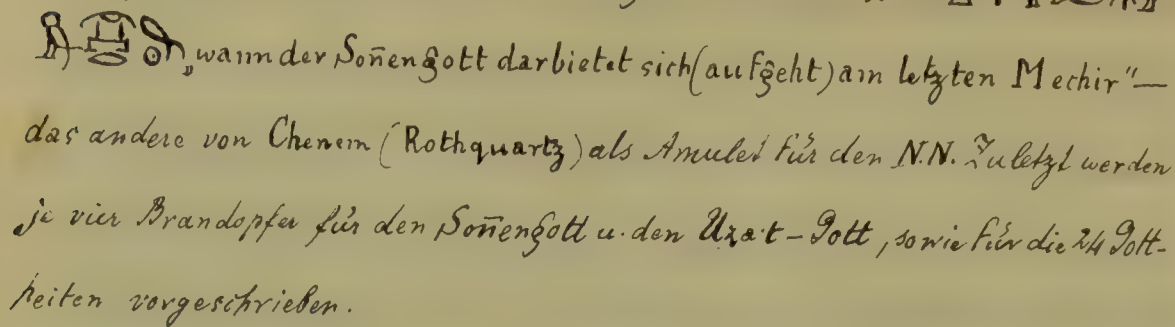 „wann der Soñengott darbietet sich (aufgeht) am letzten Mechir"—
das andere von Chenem (Rothquartz) als Amulet für den N.N. Zuletzt werden
je vier Brandopfer für den Soñengott u. den Uza·t-Gott, sowie für die 24 Gott-
heiten vorgeschrieben.